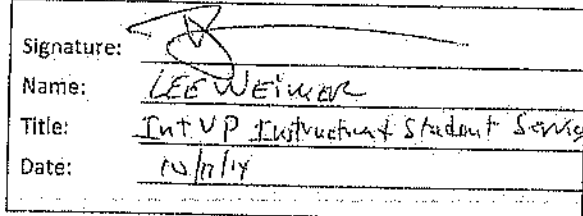 Signature:
Name: LEE WEimer
Title: Int VP Instruction & Student Servic
Date: